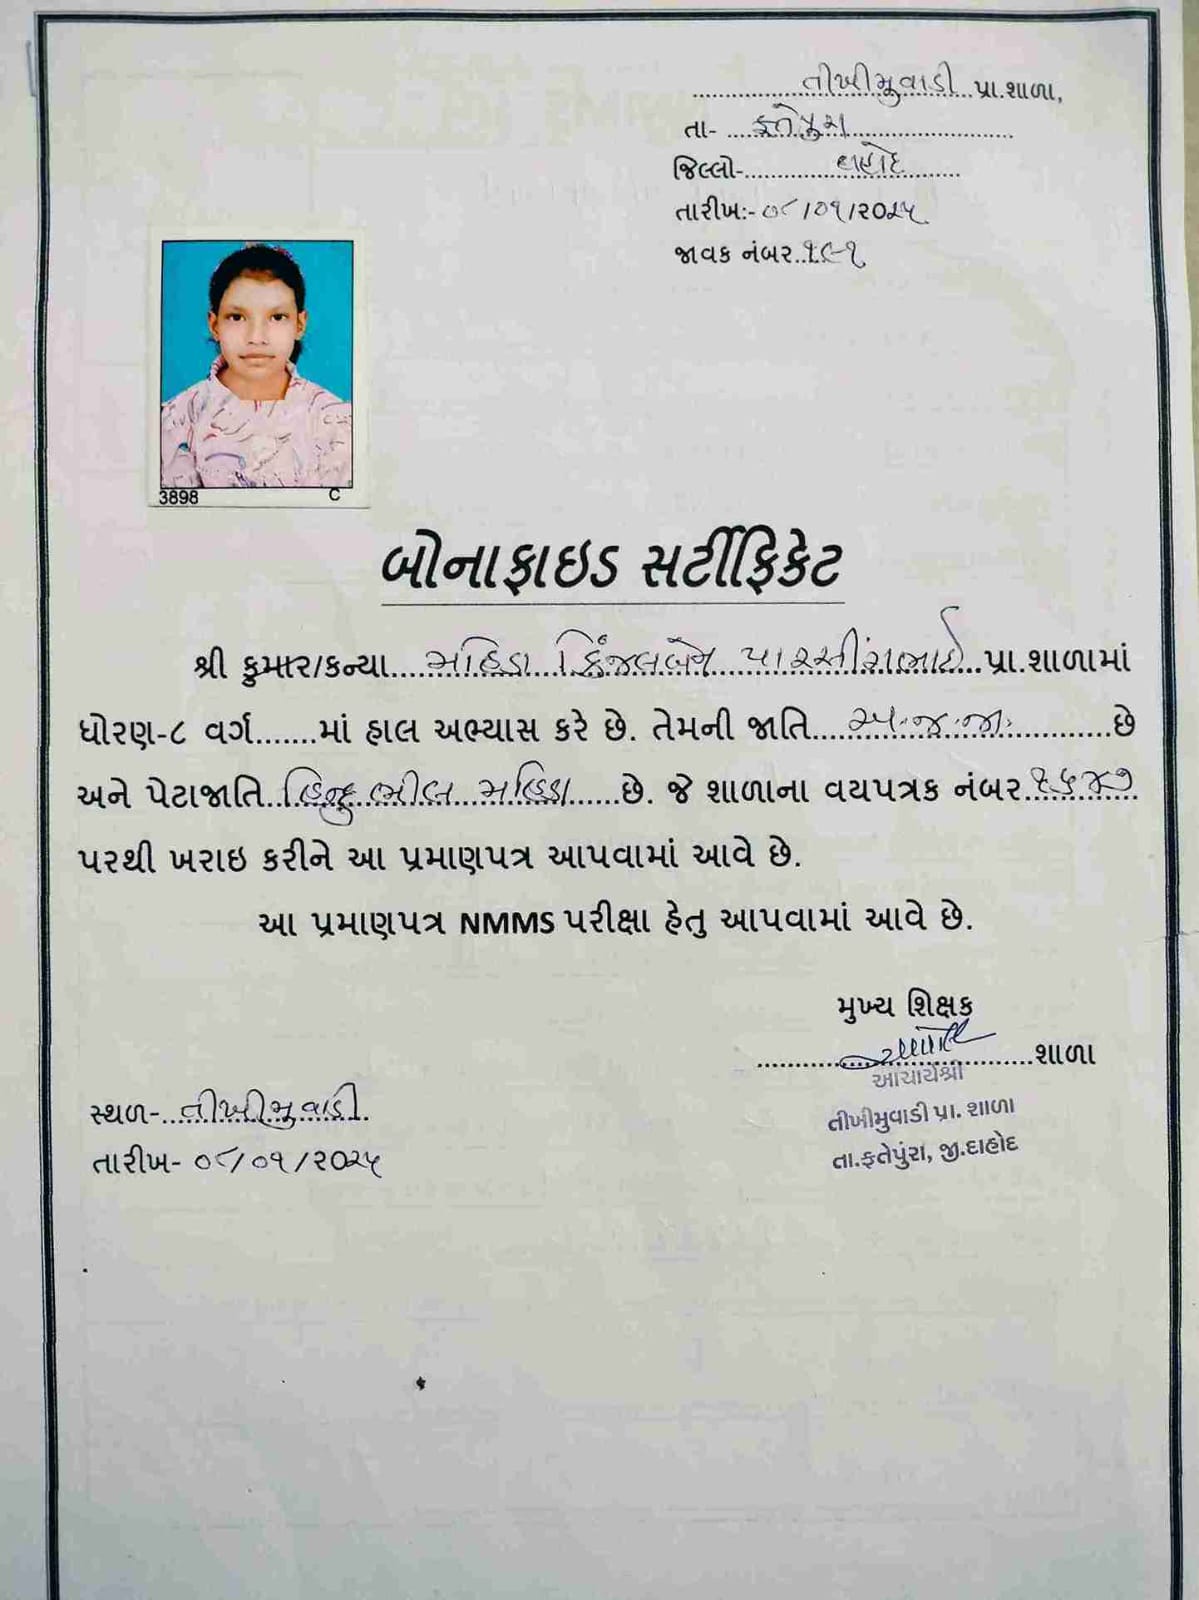 તીખીમુવાડી પ્રા.શાળા,
તા- ફતેપુરા
જિલ્લો- દાહોદ
તારીખ:- ૦૮/૦૧/૨૦૨૫
જાવક નંબર
3898 C
બોનાફાઇડ સર્ટીફિકેટ
શ્રી કુમાર/કન્યા મહિડા કિંજલબેન પારસીંગભાઈ પ્રા.શાળામાં
ધોરણ-૮ વર્ગ.......માં હાલ અભ્યાસ કરે છે. તેમની જાતિ અ.જ.જા. છે
અને પેટાજાતિ હિન્દુ ભીલ મહિડા છે. જે શાળાના વયપત્રક નંબર
પરથી ખરાઇ કરીને આ પ્રમાણપત્ર આપવામાં આવે છે.
આ પ્રમાણપત્ર NMMS પરીક્ષા હેતુ આપવામાં આવે છે.
મુખ્ય શિક્ષક
શાળા
આચાર્યશ્રી
તીખીમુવાડી પ્રા. શાળા
તા.ફતેપુરા, જી.દાહોદ
સ્થળ- તીખીમુવાડી
તારીખ- ૦૮/૦૧/૨૦૨૫